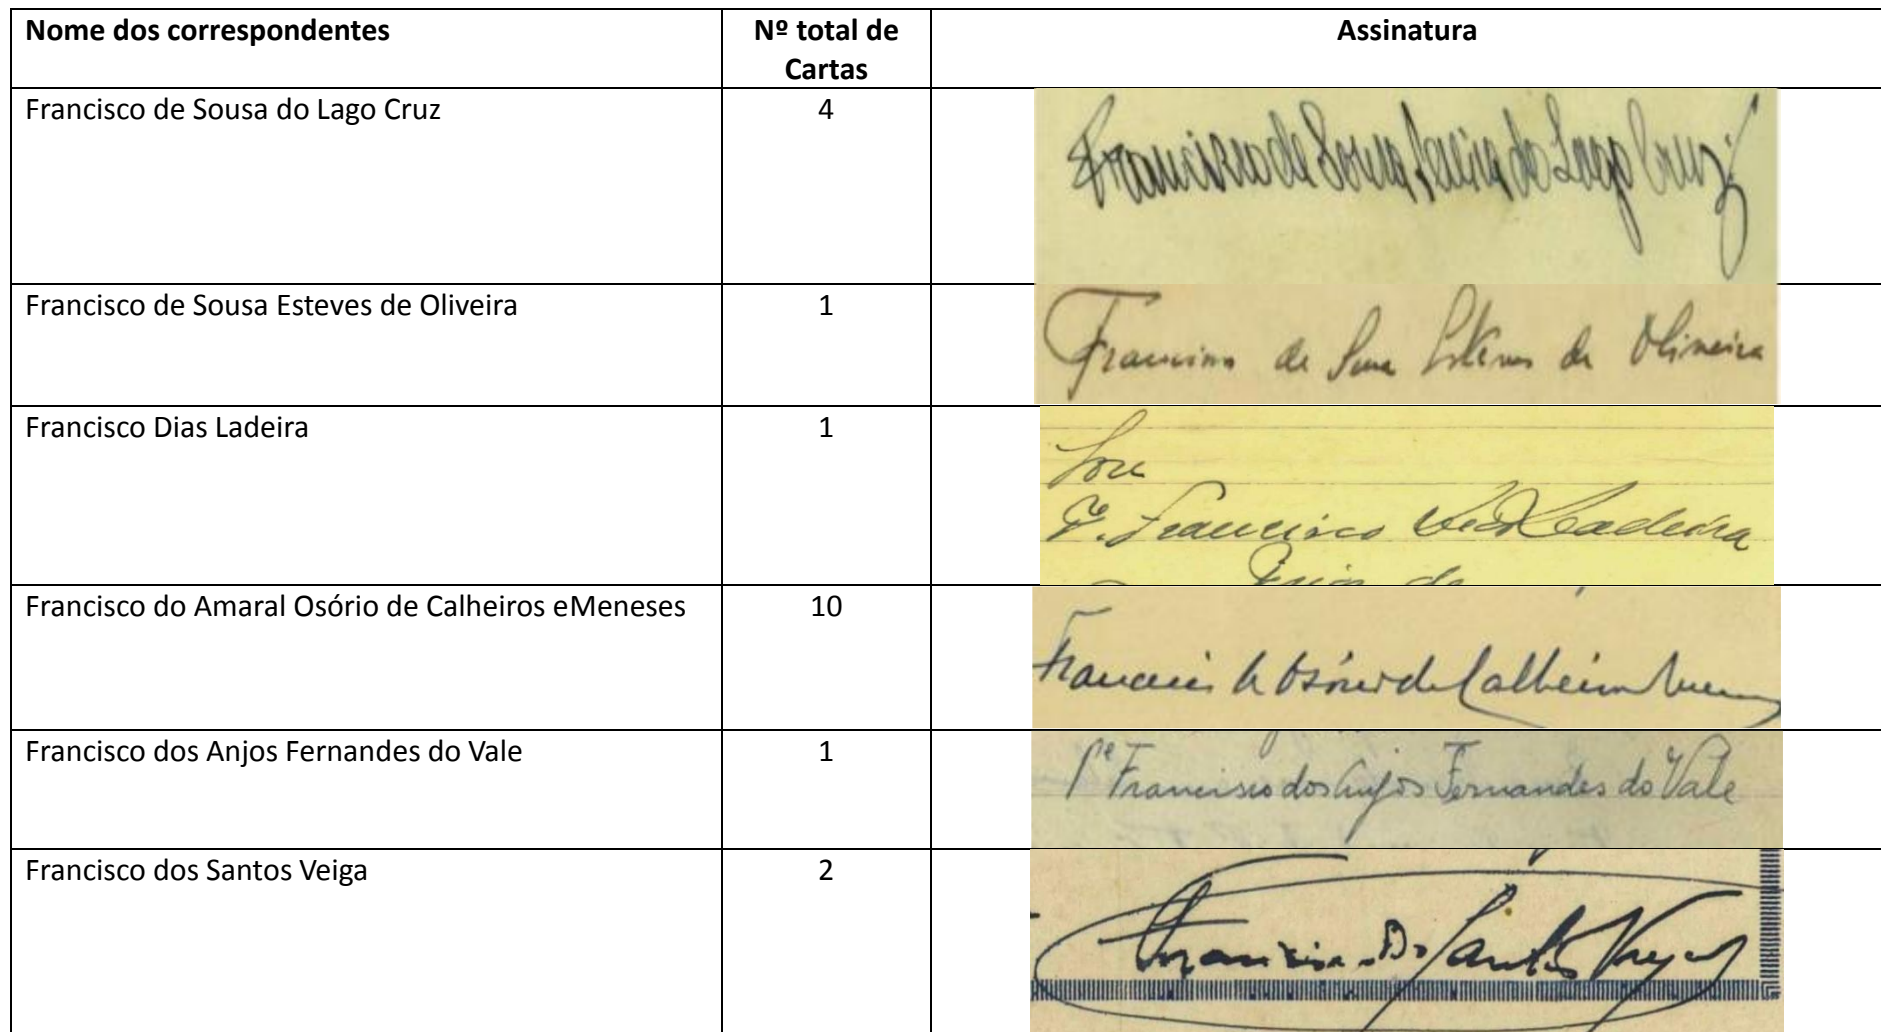 Nome dos correspondentes
Nº total de
Cartas
Assinatura
Francisco de Sousa do Lago Cruz
4
Francisco de Sousa do Lago Cruz
Francisco de Sousa Esteves de Oliveira
1
Francisco de Sousa Esteves de Oliveira
Francisco Dias Ladeira
1
P.e Francisco Dias Ladeira
Francisco do Amaral Osório de Calheiros eMeneses
10
Osório de Calheiros
Francisco dos Anjos Fernandes do Vale
1
Pe Francisco dos Anjos Fernandes do Vale
Francisco dos Santos Veiga
2
Francisco dos Santos Veiga